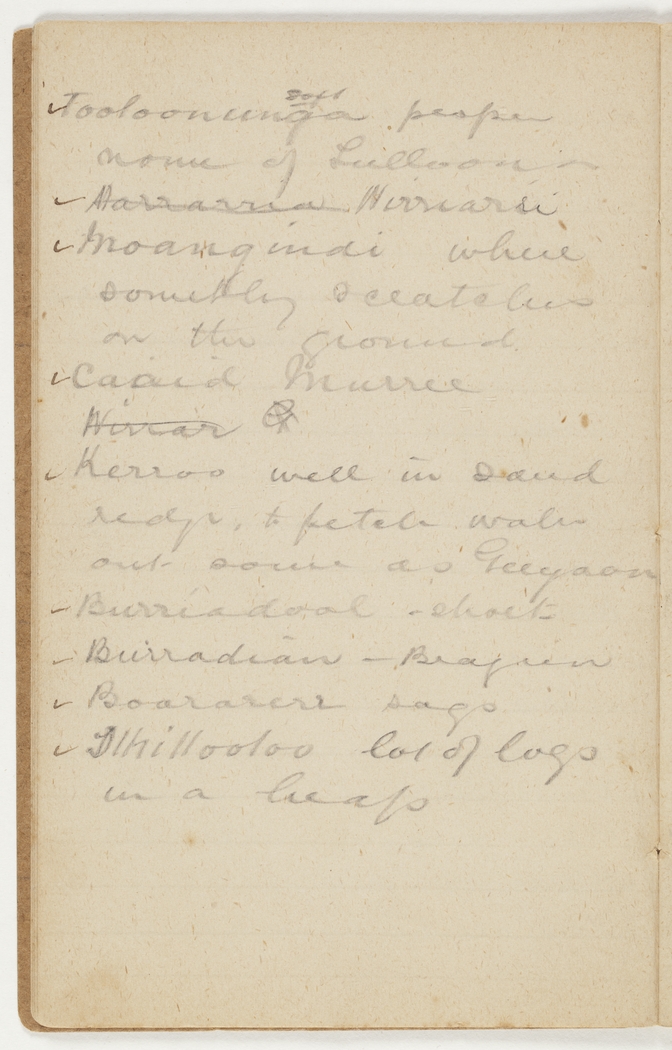 soft
✓ Tooloonunga proper
name of Lulloon
✓ Harrarria Hirriarri
✓ Moangindi where
somethg scratches
on the ground
✓ Caaid Murree
Hirrar
✓ Kerroo well in sand
redge, to fetch water
out same as Geeyaon
– Burriadool - short
– Burradian –
✓ Boararerr sags
✓ Dhillooloo lot of logs
in a heap